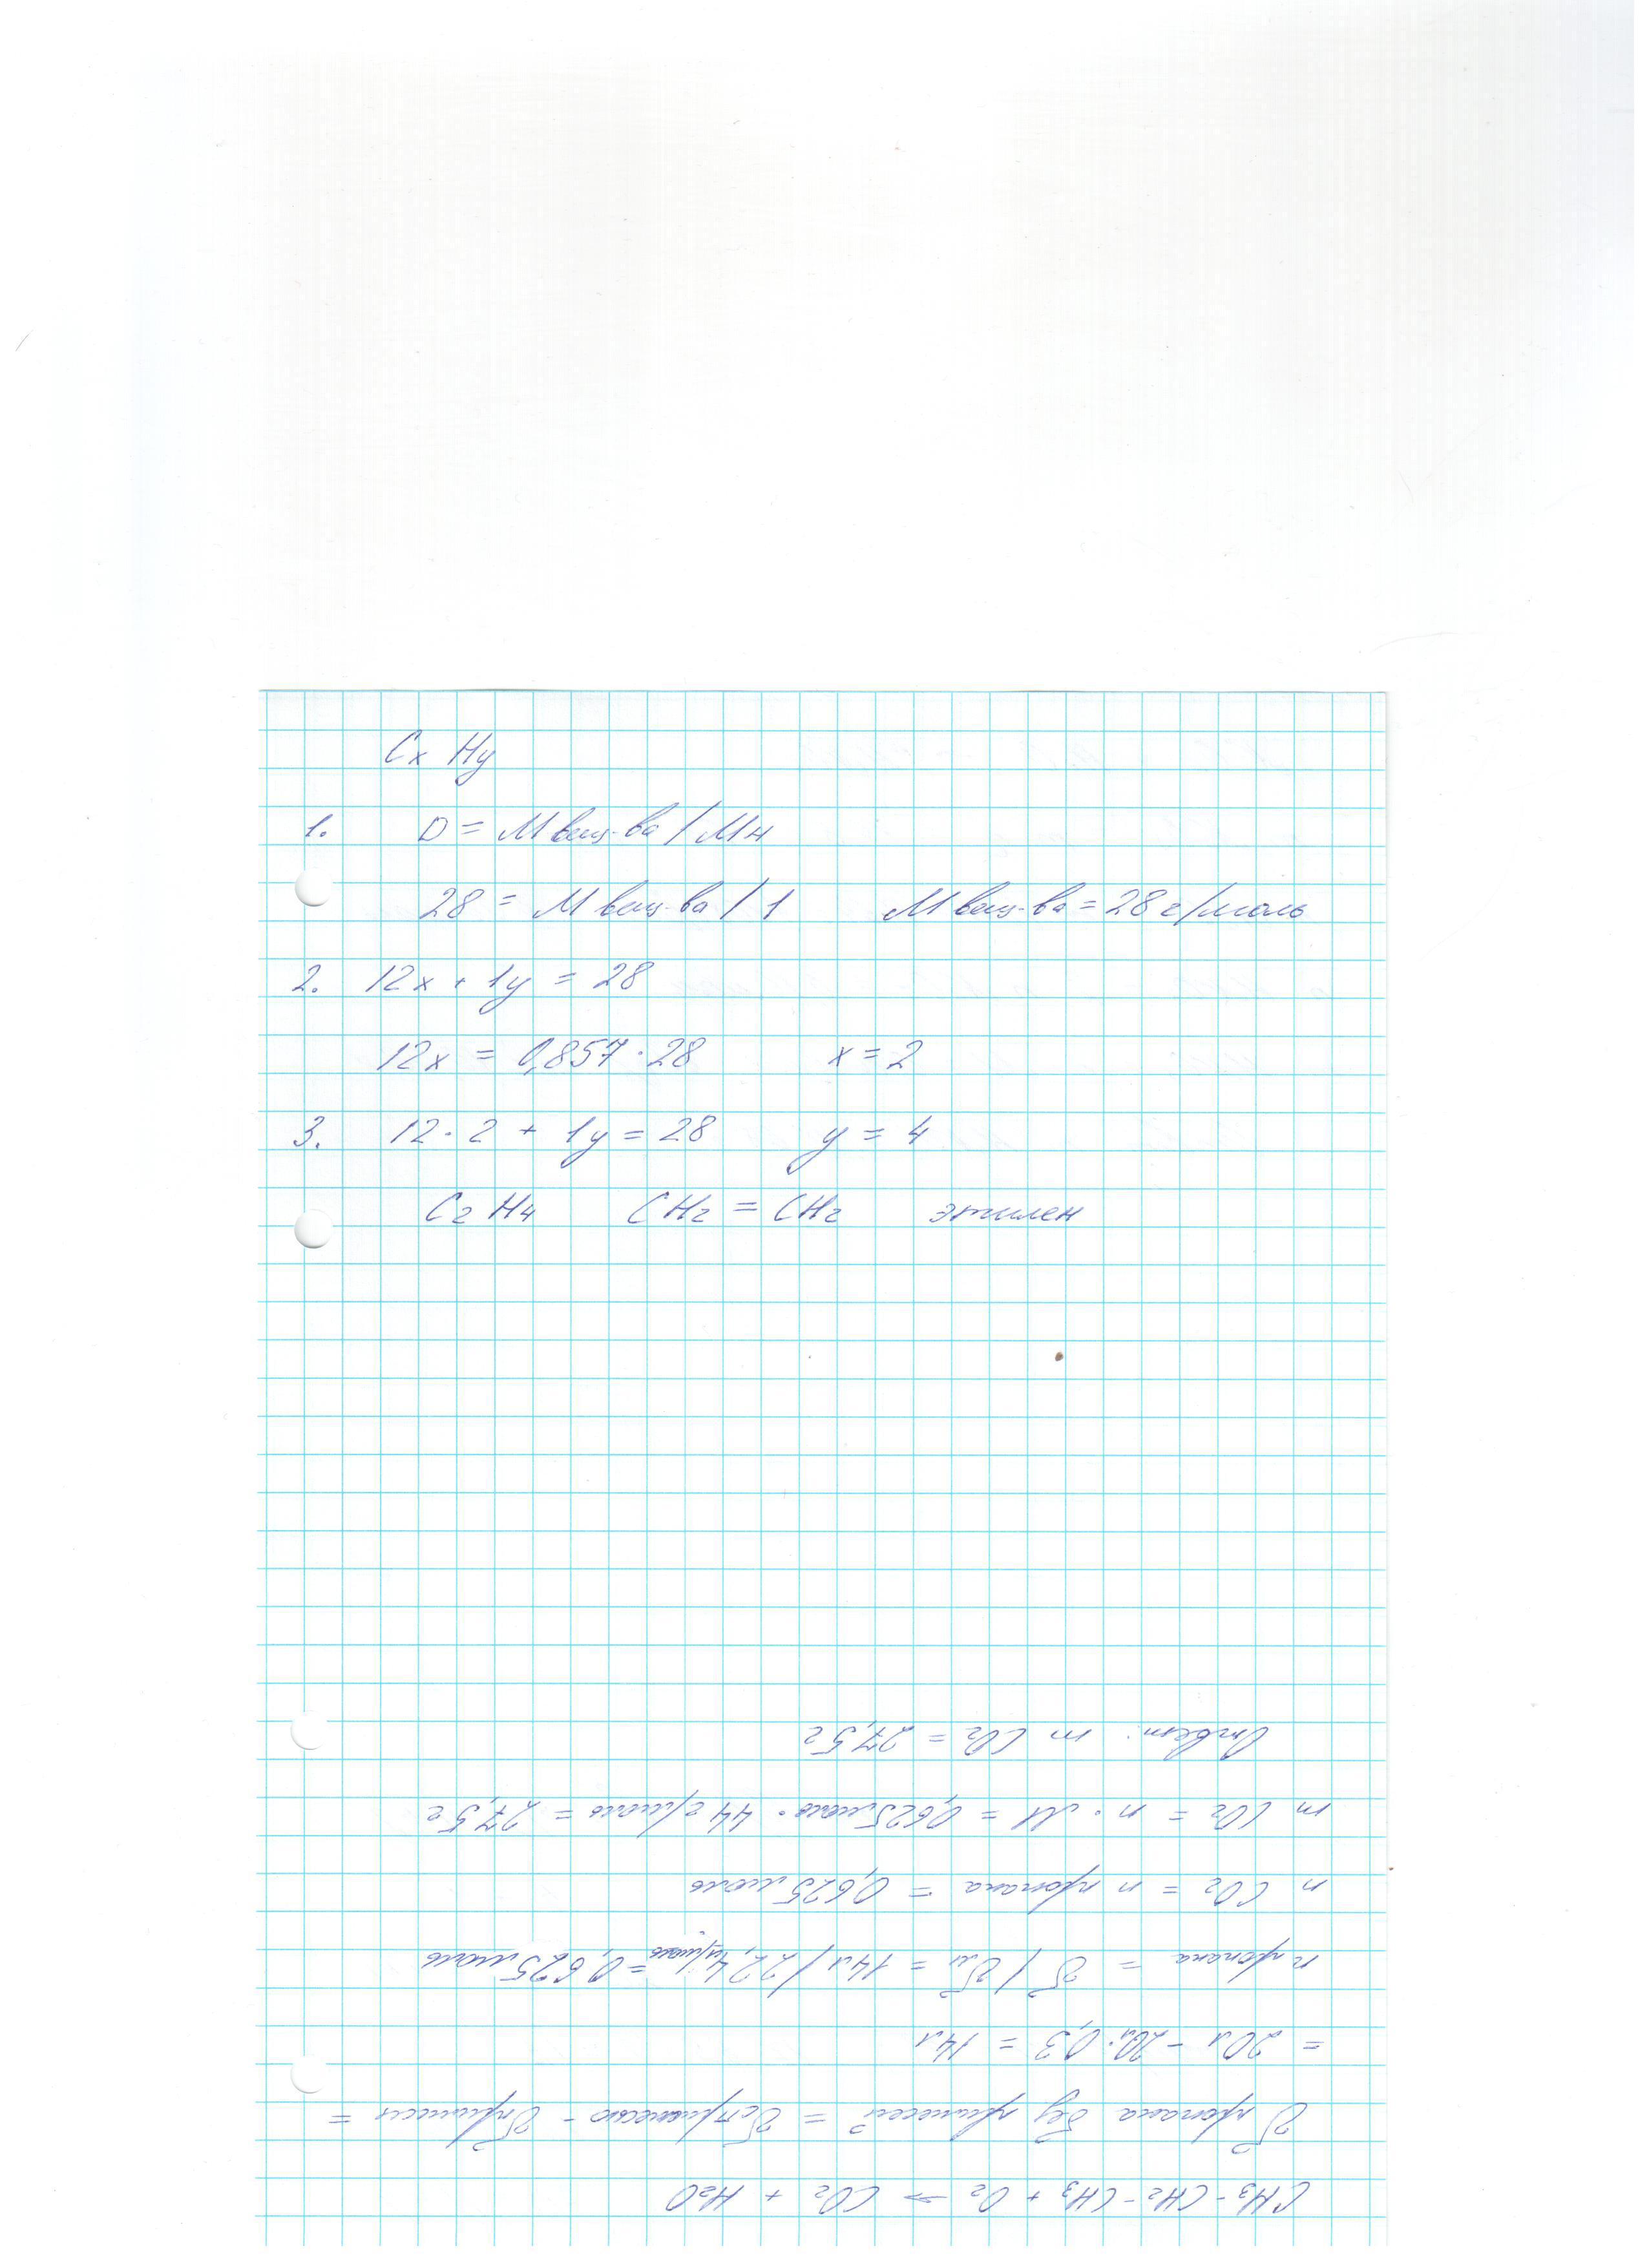 Cx Hy
1. D = M вещ-ва / MH
28 = M вещ-ва / 1 M вещ-ва = 28 г/моль
2. 12x + 1y = 28
12x = 0,857 · 28 x = 2
3. 12 · 2 + 1y = 28 y = 4
C2 H4 CH2 = CH2 этилен
CH3 - CH2 - CH3 + O2 → CO2 + H2O
V пропана без примесей = V с примесью - V примеси =
= 20л - 20л · 0,3 = 14л
n пропана = V / Vм = 14л / 22,4 л/моль = 0,625 моль
n CO2 = n пропана = 0,625 моль
m CO2 = n · M = 0,625 моль · 44 г/моль = 27,5 г
Ответ: m CO2 = 27,5 г